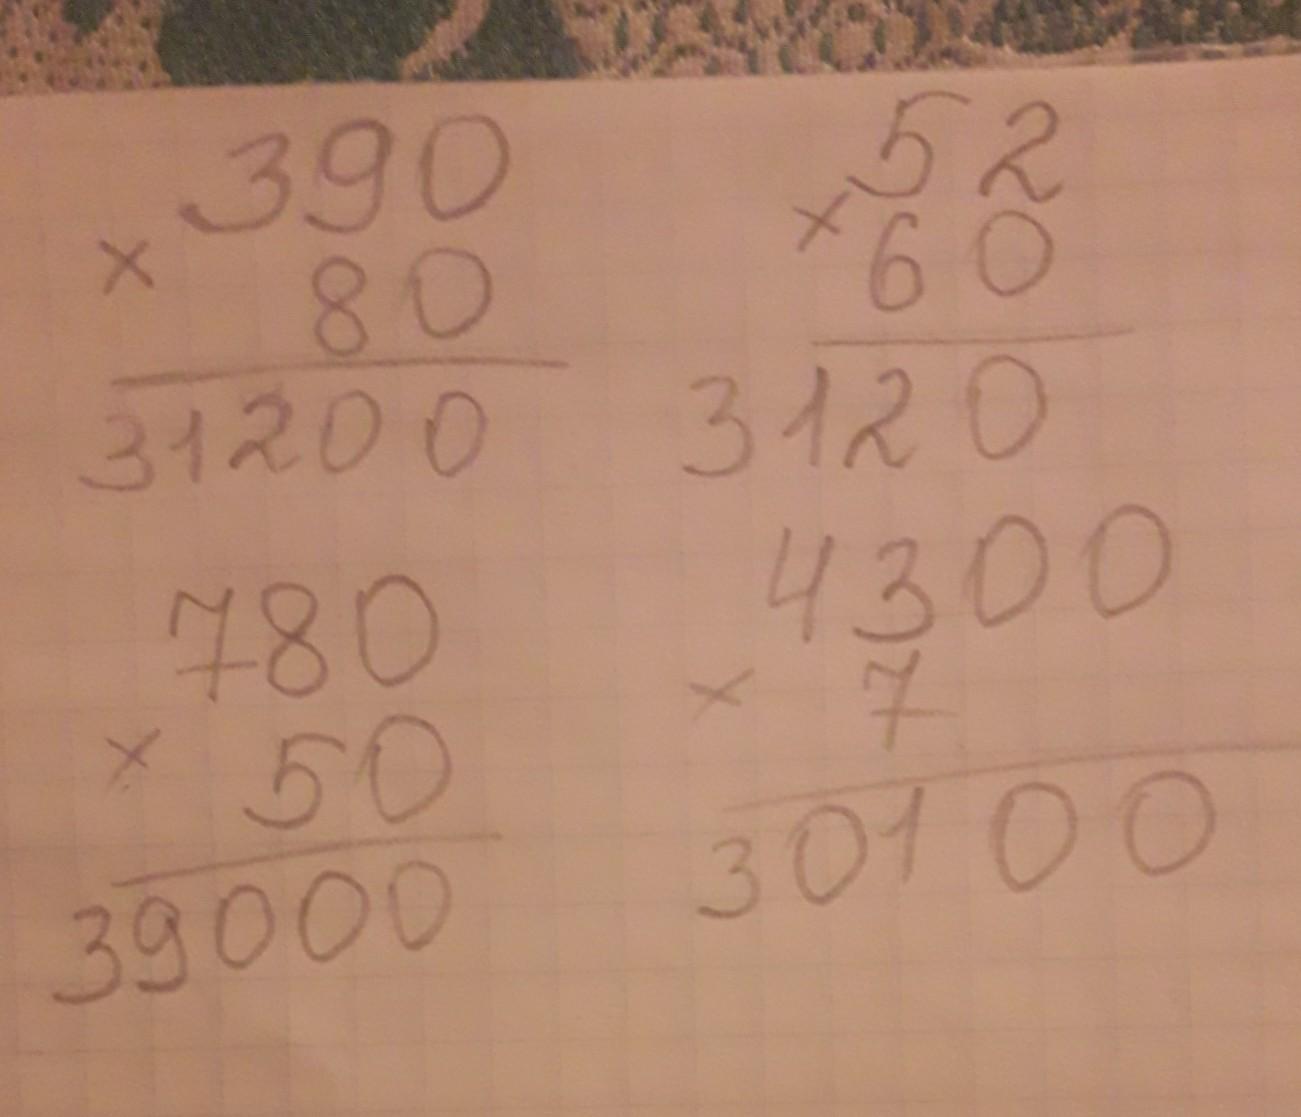 390
× 80
31200
52
× 60
3120
780
× 50
39000
4300
× 7
30100